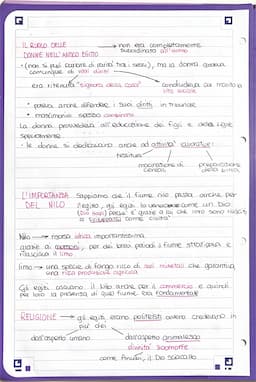 IL RUOLO DELLE → non era completamente
DONNE NELL'ANTICO EGITTO subordinata all'uomo
• (non si può parlare di parità tra i sessi), ma la donna godeva
comunque di vari diritti
era ritenuta "signora della casa" condividendo col marito la
vita sociale
• poteva anche difendere i suoi diritti in tribunale
• matrimonio spesso combinato
La donna provvedeva all'educazione dei figli e della
spesalmente
• le donne si dedicavano anche ad attività
tessitura
macinazione di preparazione
cereali della birra
L'IMPORTANZA Sappiamo che il fiume nilo passa anche per
DEL NILO l'egitto, gli egizi lo come un Dio
(Dio Hapi) perché è grazie a lui che intorno
si sviluppata come civiltà
Nilo → risorsa idrica importantissima
grazie ai, per dei brevi periodi il fiume straripava e
rilasciava il limo
limo → una specie di fango ricco di sali minerali che garantiva
una ricca produzione agricola
Gli egizi usavano il Nilo anche per il commercio e quindi
per loro la presenza di quel fiume era fondamentale
RELIGIONE → gli egizi, erano politeisti ovvero credevano in
più dei
dall'aspetto umano dall'aspetto animalesco
divinità zoomorfe
come Anubi, il Dio sciacallo